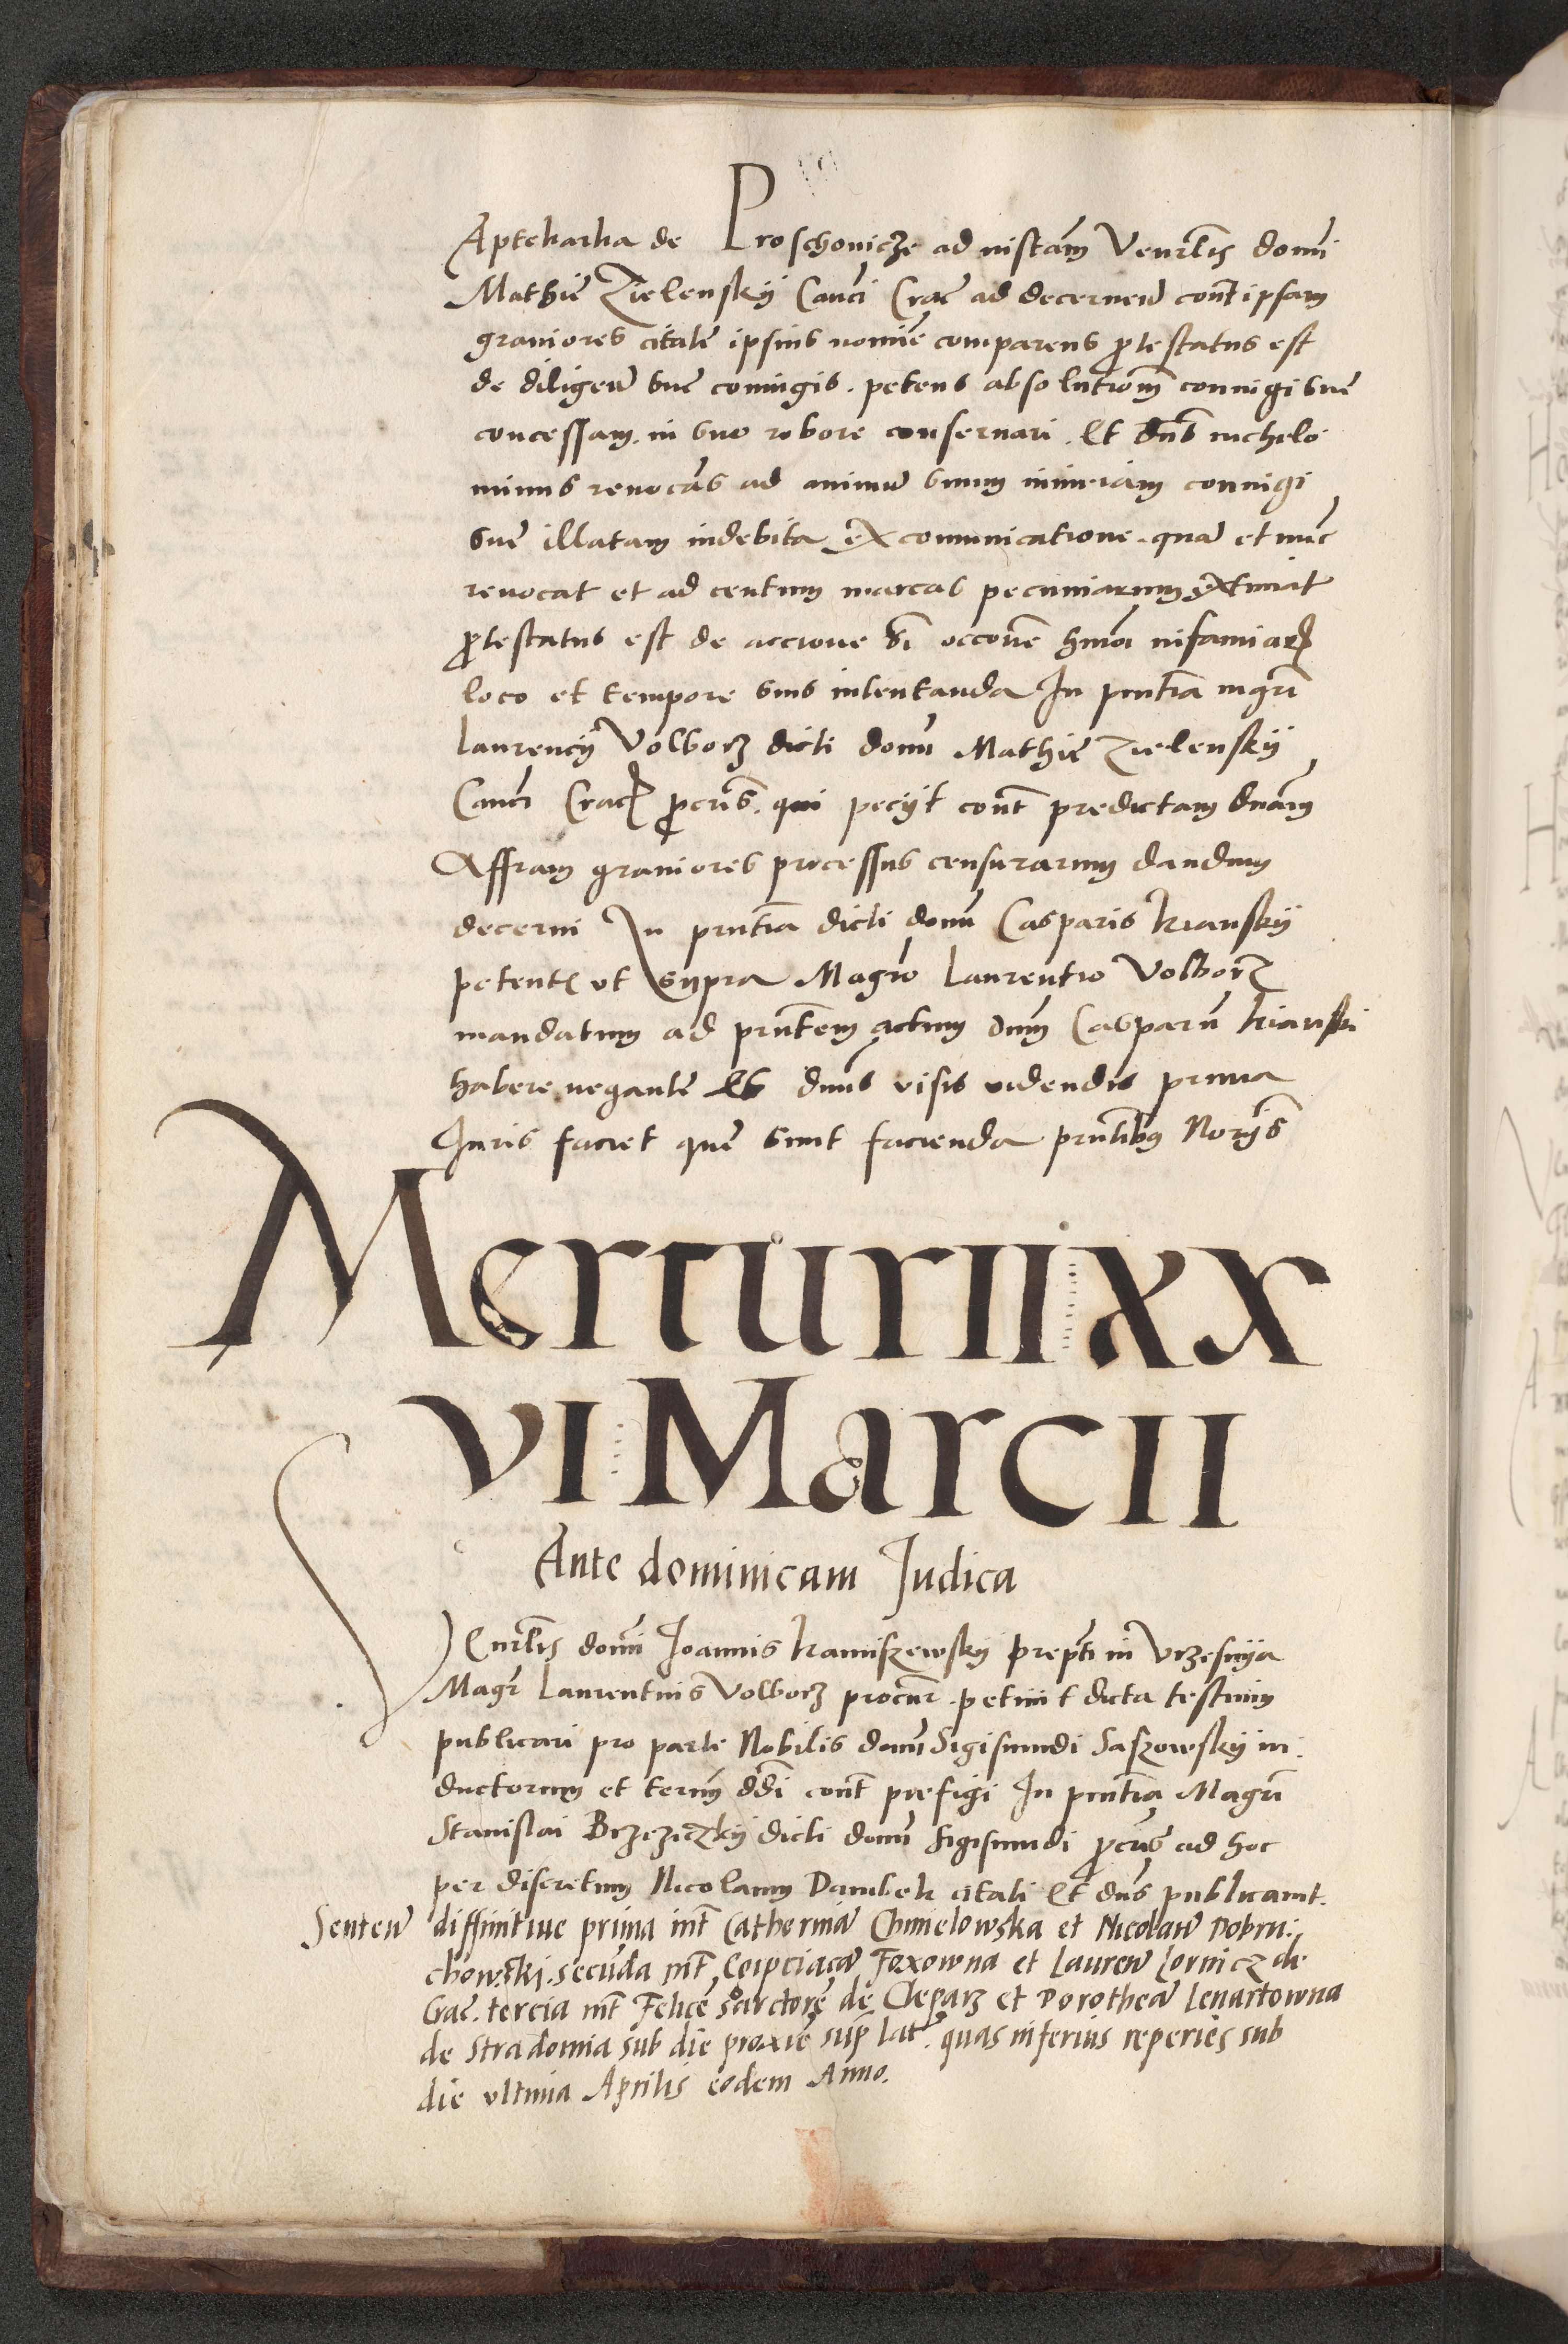 Aptekarka de Proschovicze ad instam Venrlis domi
Mathie Zielenskij Canci Crac ad decernen cont ipsam
graviores citate ipsius nomie comparens ptestatus est
de diligen sue coniugis . petens absolutiom coniugi sue
concessam in suo robore conservari . Et dns nichilo
minus revocas ad animu suum iniuriam coniugi
sue illatam indebita excomunicatione . qua et nuc
revocat et ad centum marcas pecuniarum extimat
ptestatus est de accione occone hmoi infamiar
loco et tempore suis intentanda In pntia mgri
Laurencij Volborz dicti domi Mathie Zielenskij
Canci Crac pcris . qui pecijt cont predictam dnam
Affram graviores processus censurarum dandum
decerni In pntia dicti domi Casparis Kianskij
petent ut supra Magro Laurentio Volborz
mandatum ad pntem actum dnm Casparu Kianski
habere negante Et dnus visis videndis prima
Iuris faciet que sunt facienda pntibus Norijs
Mercurii xx
vi Marcii
Ante dominicam Judica
Venrlis domi Joannis Kamiszewskij prepti in Vrzesnija
Magr Laurentius Volborz procur . petiuit dicta testium
publicari pro parte Nobilis domi Sigismundi Saszowskij in
ductorum et termi ddi cont prefigi In pntia Magri
Stanislai Brzeziczkij dicti domi Sigismundi pcris ad hoc
per discretum Nicolaum Dambek citati Et dns publicauit .
Senten diffinitiue prima int Catherina Chmielowska et Nicolau Dobru .
chowski . secuda int Coipciaca Foxowna et Lauren Lornicz de
Gac . tercia int Felice sarctore de Cleparz et Dorothea Lenartowna
de Stradomia sub die proxie sup lat . quas inferius reperies sub
die vltima Aprilis eodem Anno .